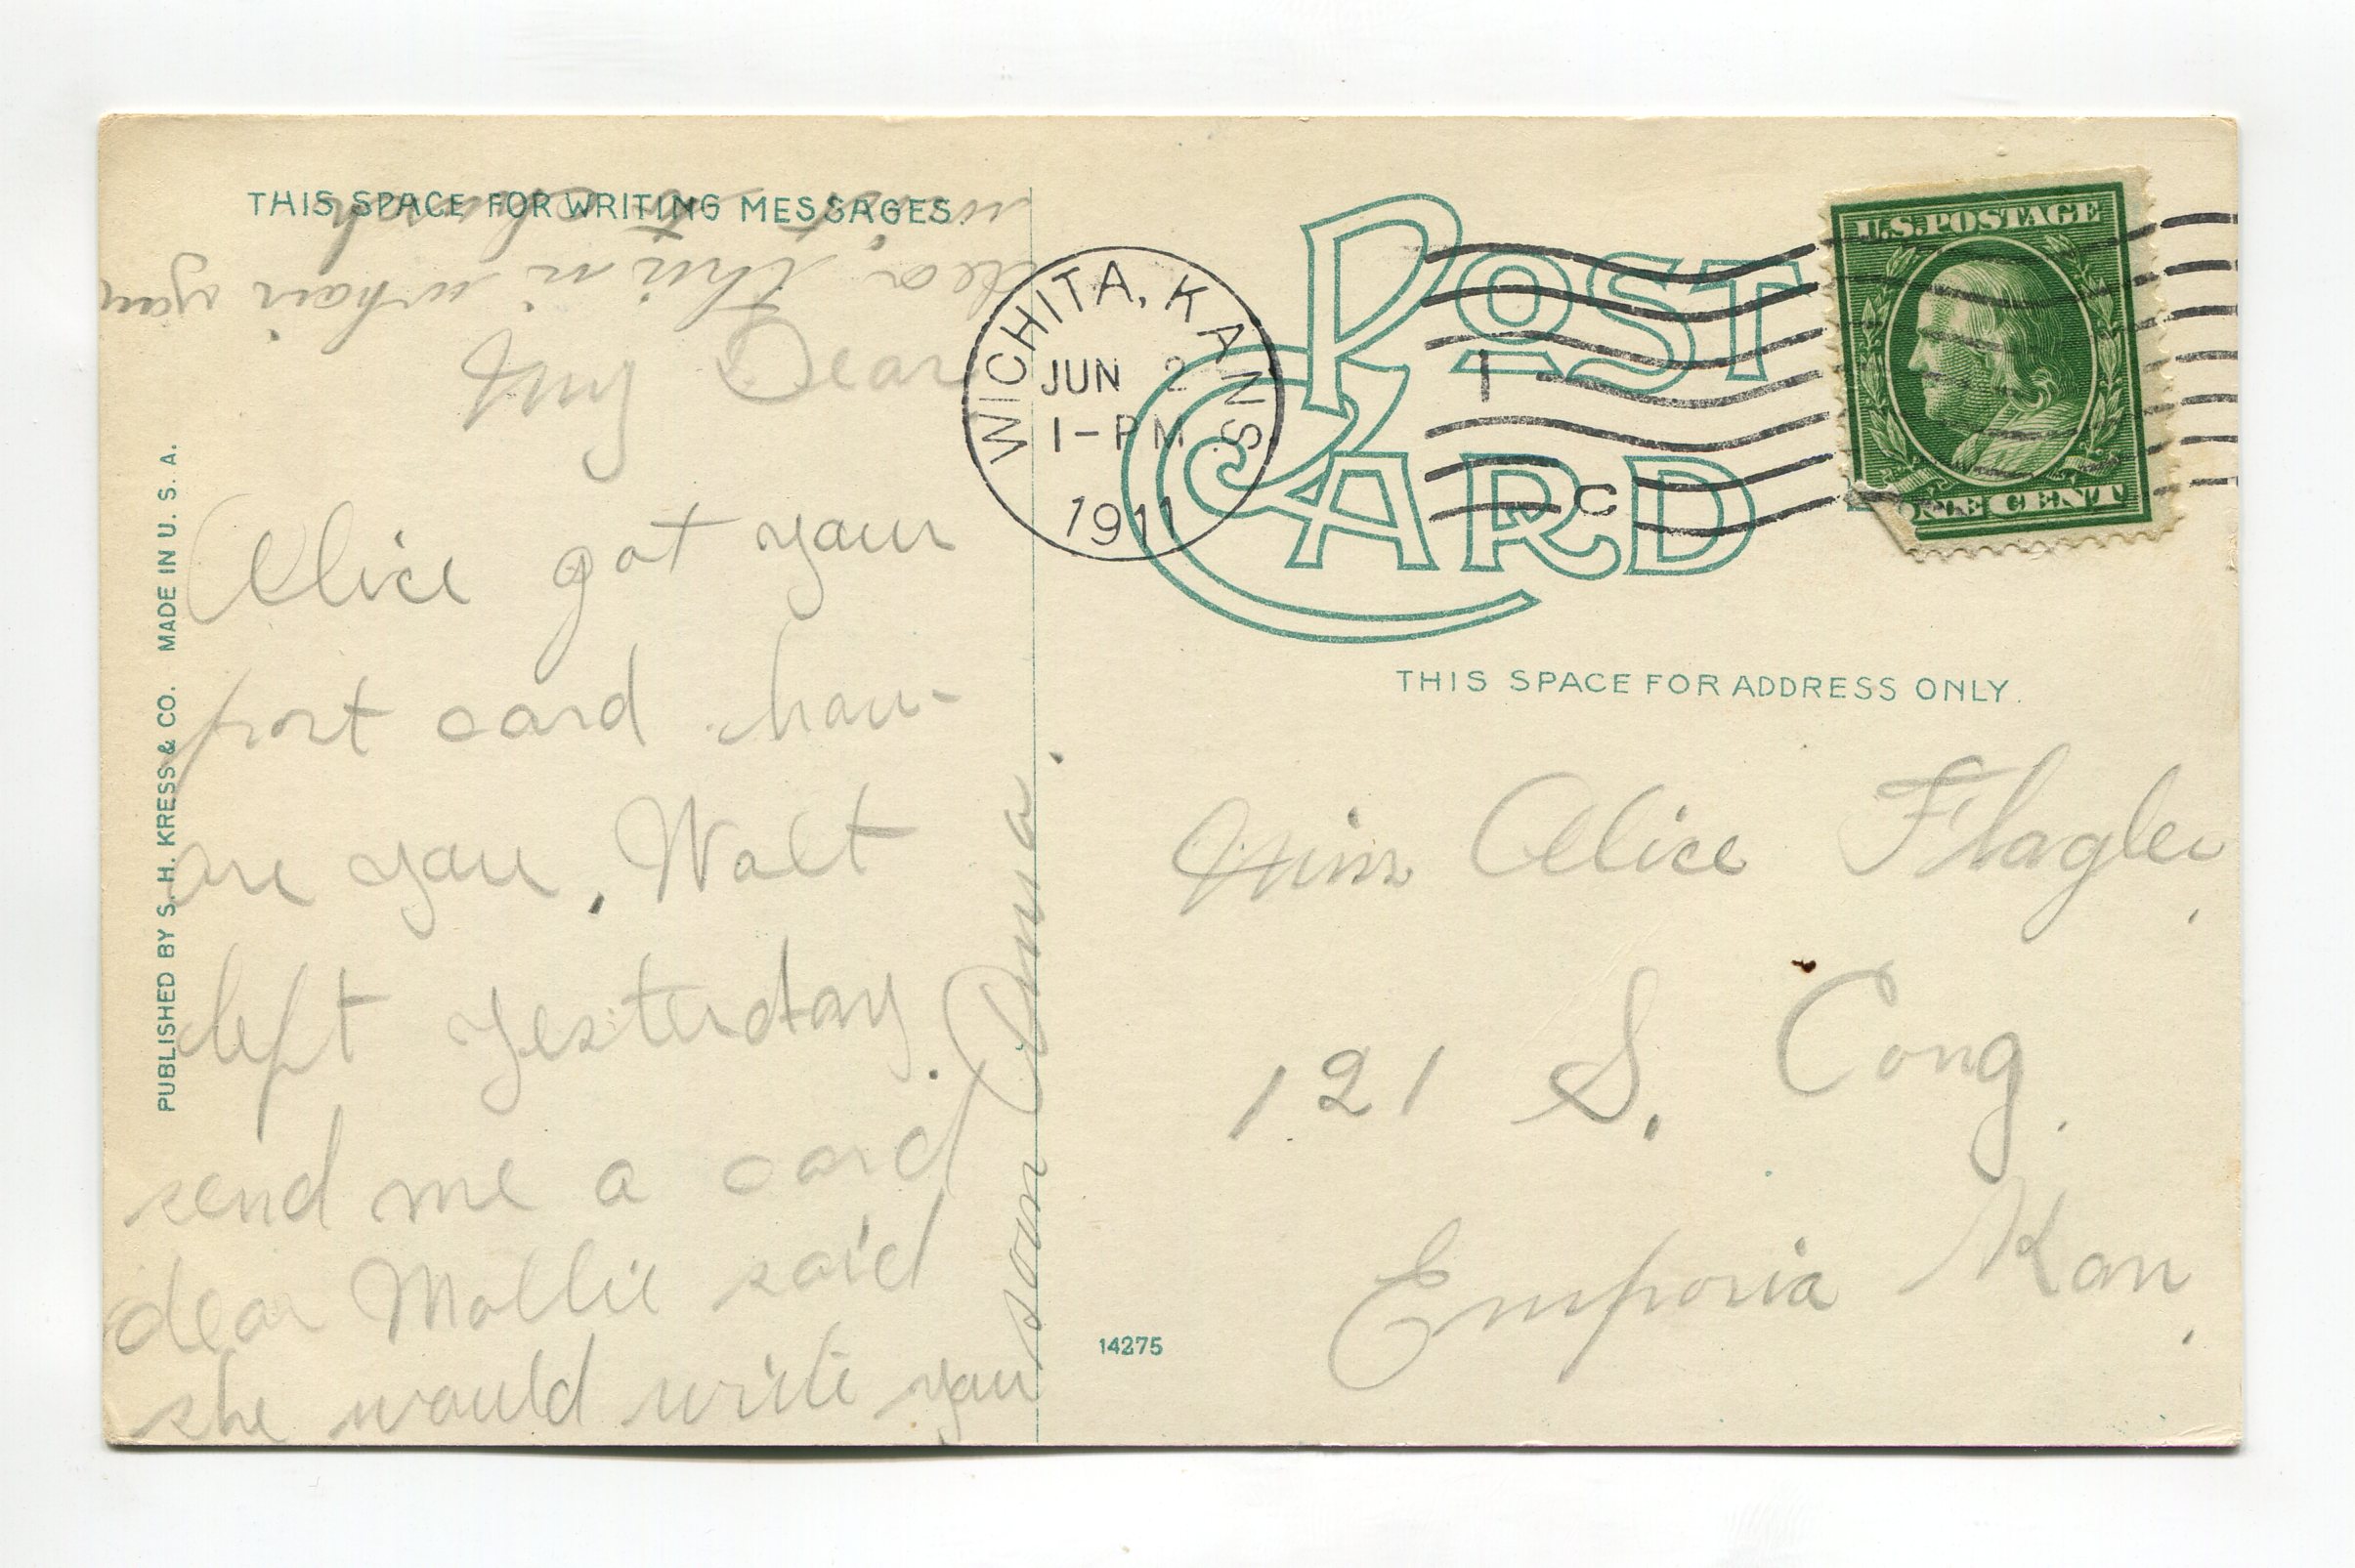 THIS SPACE FOR WRITING MESSAGES.
My Dear
Alice got your
post card how
are you. Walt
left yesterday.
send me a card
dear Mollie said
she would write you
soon Anna.
dear this is whair you
PUBLISHED BY S. H. KRESS & CO. MADE IN U. S. A.
WICHITA, KANS.
JUN 2
1-PM
1911
1
C
POST
CARD
U.S. POSTAGE
ONE CENT
THIS SPACE FOR ADDRESS ONLY.
Miss Alice Flagler,
121 S. Cong.
Emporia Kan.
14275